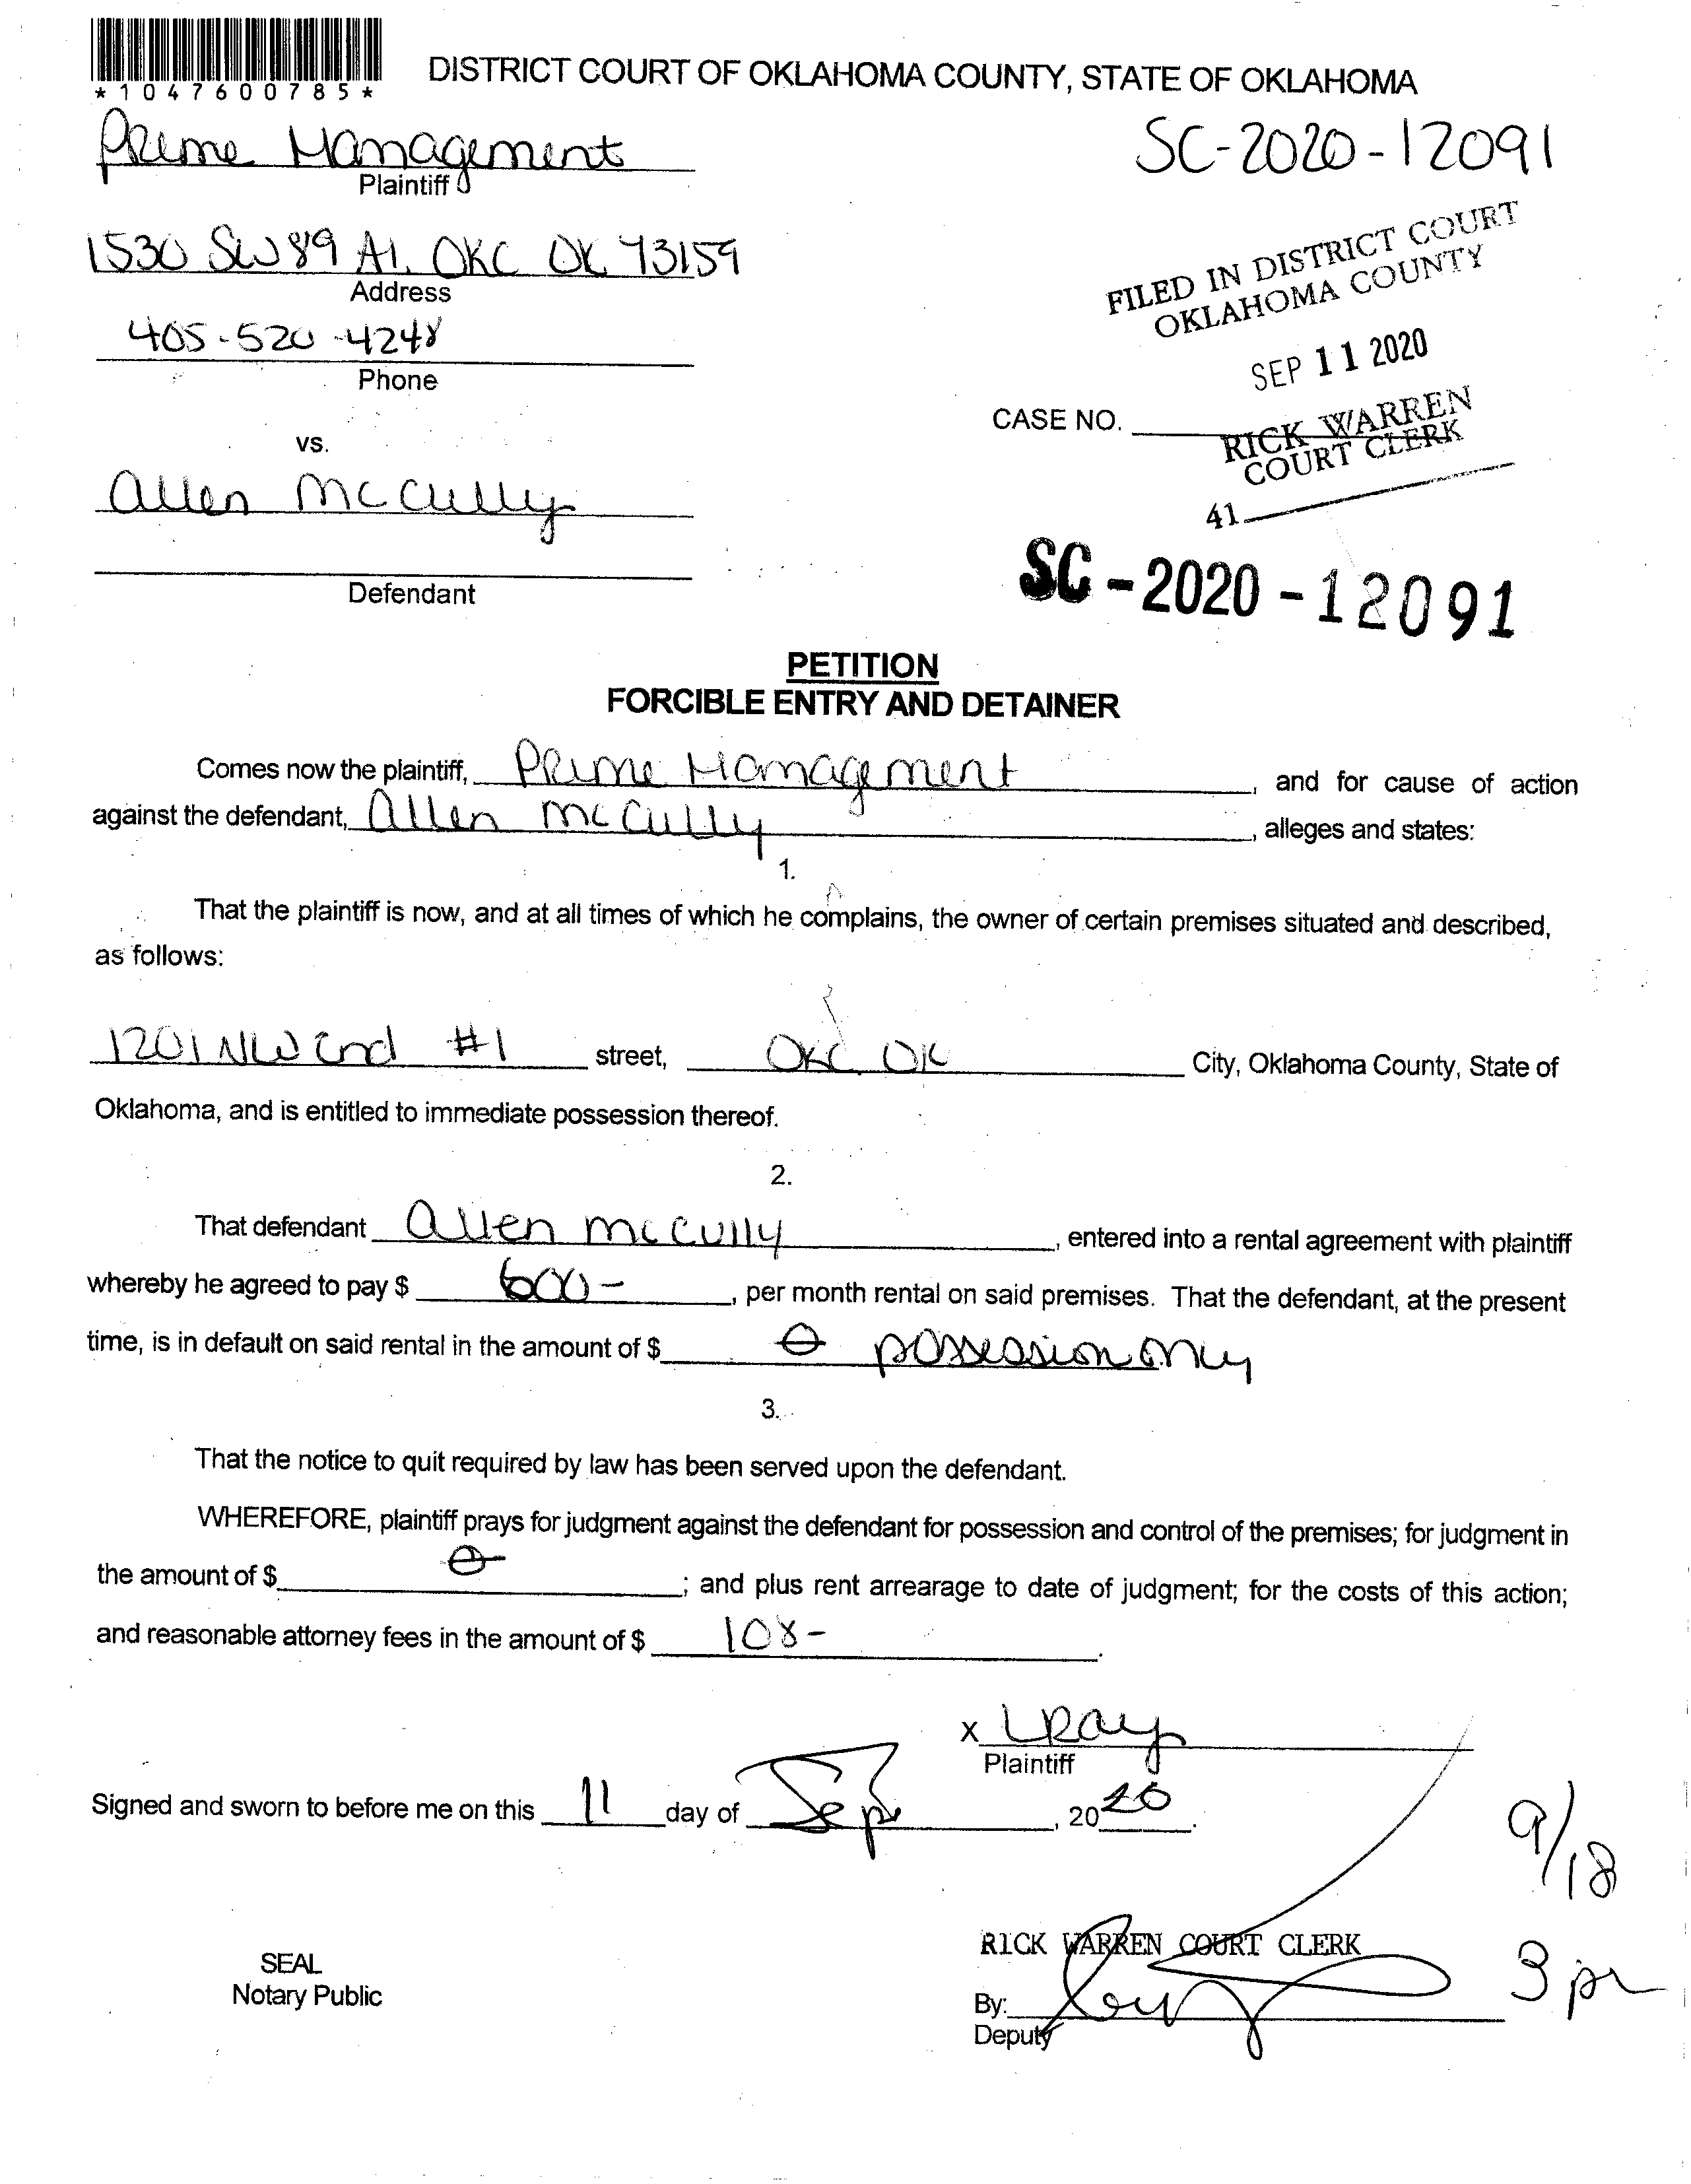 *1047600785*
DISTRICT COURT OF OKLAHOMA COUNTY, STATE OF OKLAHOMA
Prime Management
Plaintiff
SC-2020-12091
1530 SW 89 A1. OKC OK 73159
Address
FILED IN DISTRICT COURT
OKLAHOMA COUNTY
405-520-4248
Phone
SEP 11 2020
CASE NO.
RICK WARREN
COURT CLERK
41
vs.
Allen McCully
Defendant
SC-2020-12091
PETITION
FORCIBLE ENTRY AND DETAINER
Comes now the plaintiff, Prime Management, and for cause of action
against the defendant, Allen McCully, alleges and states:
1.
That the plaintiff is now, and at all times of which he complains, the owner of certain premises situated and described,
as follows:
1201 NW 2nd #1 street, OKC OK City, Oklahoma County, State of
Oklahoma, and is entitled to immediate possession thereof.
2.
That defendant Allen McCully, entered into a rental agreement with plaintiff
whereby he agreed to pay $ 600-, per month rental on said premises. That the defendant, at the present
time, is in default on said rental in the amount of $ 0 possession only
3.
That the notice to quit required by law has been served upon the defendant.
WHEREFORE, plaintiff prays for judgment against the defendant for possession and control of the premises; for judgment in
the amount of $ 0; and plus rent arrearage to date of judgment; for the costs of this action;
and reasonable attorney fees in the amount of $ 108-.
X LRay
Plaintiff
Signed and sworn to before me on this 11 day of Sep, 2020.
9/18
3 pm
SEAL
Notary Public
RICK WARREN COURT CLERK
By:
Deputy